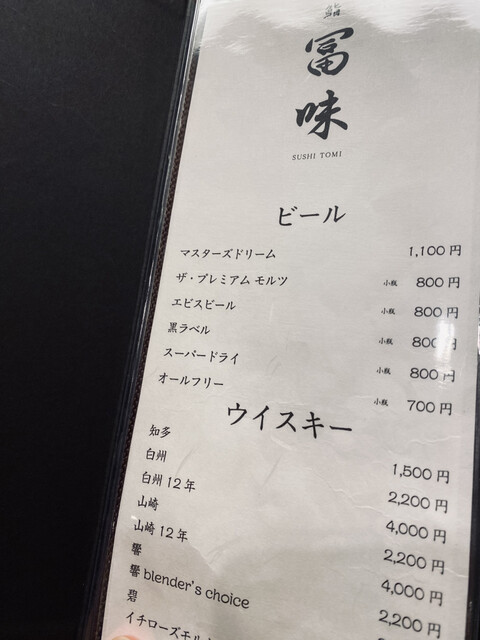 鮨
冨味
SUSHI TOMI
ビール
マスターズドリーム 1,100円
ザ・プレミアム モルツ 小瓶 800円
エビスビール 小瓶 800円
黒ラベル 小瓶 800円
スーパードライ 小瓶 800円
オールフリー 小瓶 700円
ウイスキー
知多 1,500円
白州 2,200円
白州12年 4,000円
山崎 2,200円
山崎12年 4,000円
響 2,200円
響 blender's choice
碧
イチローズモル